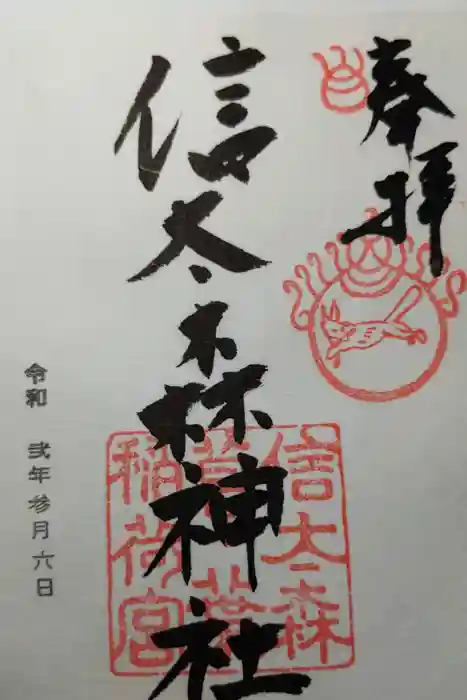 奉拝
信太森神社
信太森
葛葉
稲荷宮
令和 弐年参月六日